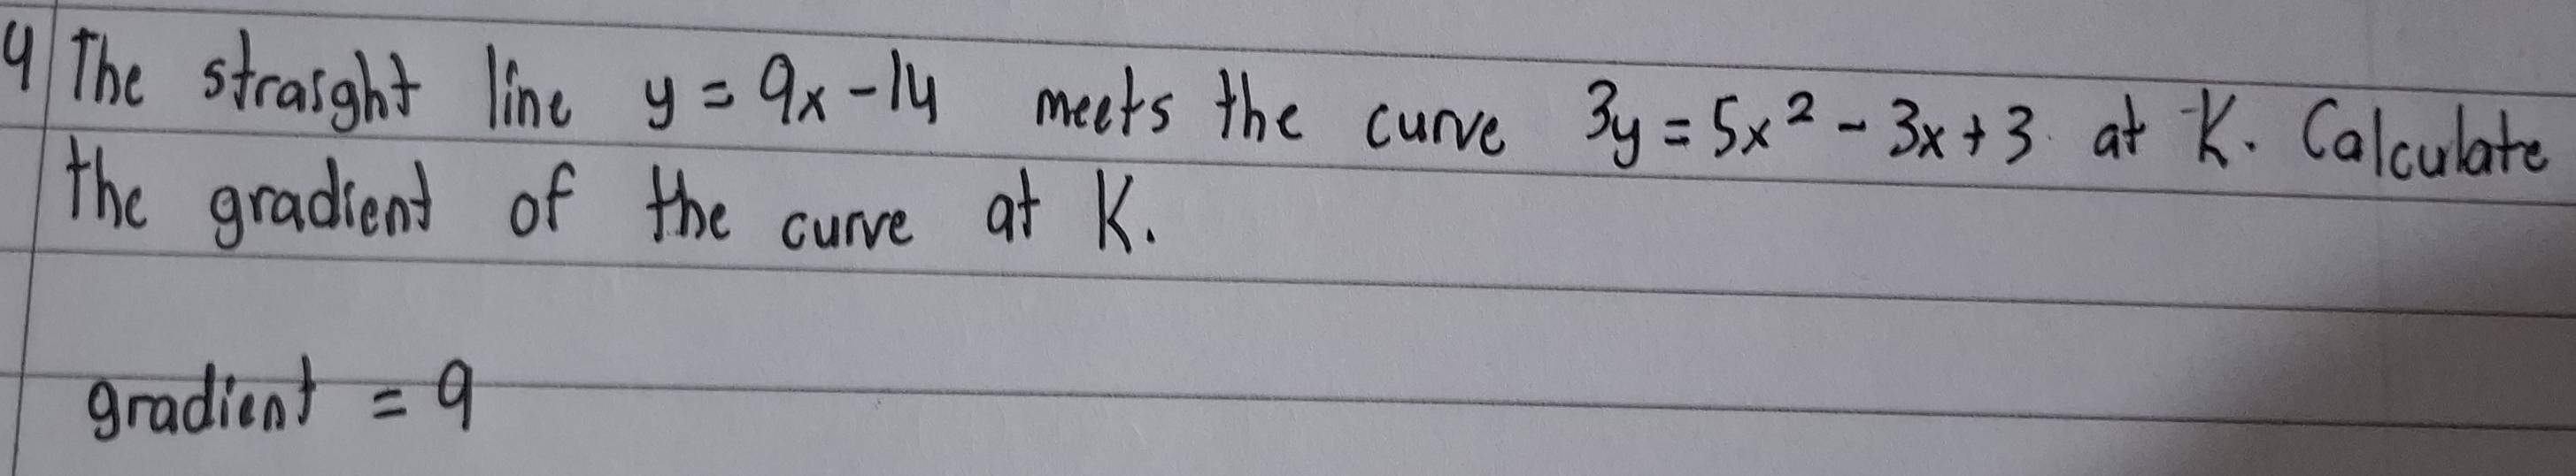 4 The straight line y = 9x - 14 meets the curve 3y = 5x² - 3x + 3 at K. Calculate
the gradient of the curve at K.
gradient = 9